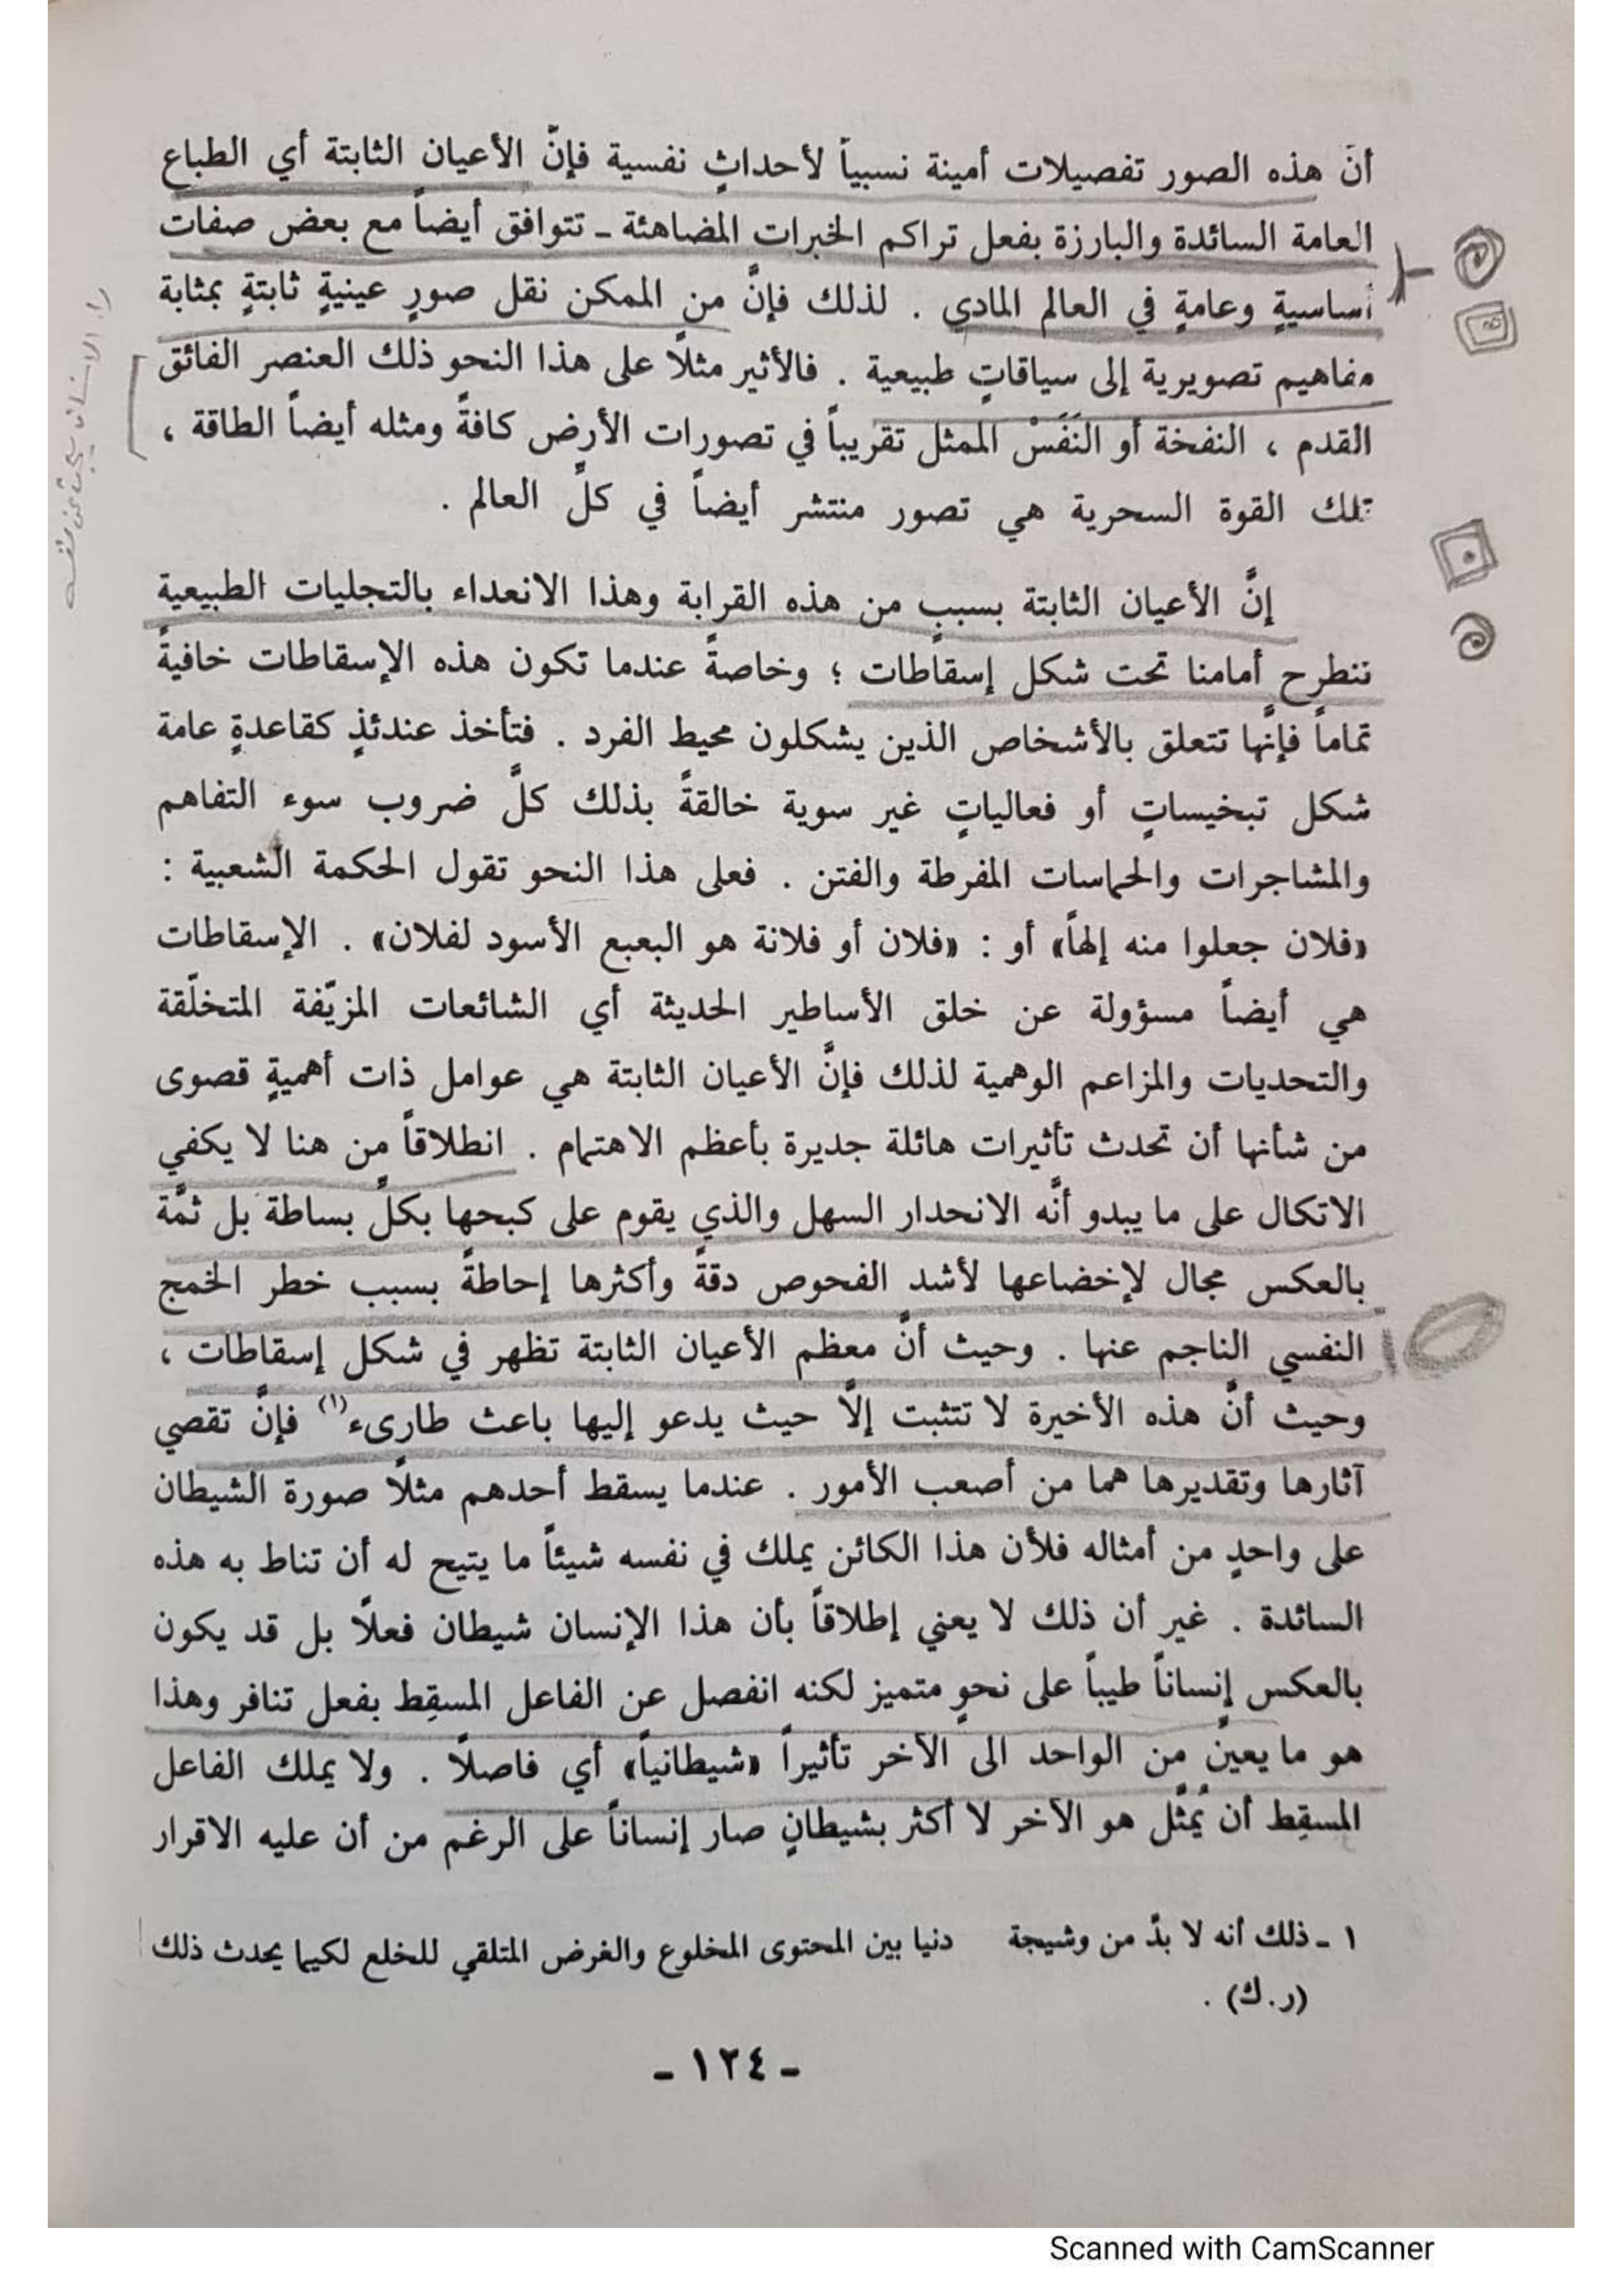 أنّ هذه الصور تفصيلات أمينة نسبياً لأحداثٍ نفسية فإنّ الأعيان الثابتة أي الطباع
العامة السائدة والبارزة بفعل تراكم الخبرات المضاهئة ـ تتوافق أيضاً مع بعض صفات
أساسيةٍ وعامةٍ في العالم المادي . لذلك فإنَّ من الممكن نقل صورٍ عينيةٍ ثابتةٍ بمثابة
مفاهيم تصويرية إلى سياقاتٍ طبيعية . فالأثير مثلًا على هذا النحو ذلك العنصر الفائق
القدم ، النفخة أو النَفَسْ الممثل تقريباً في تصورات الأرض كافةً ومثله أيضاً الطاقة ،
تلك القوة السحرية هي تصور منتشر أيضاً في كلِّ العالم .
إنَّ الأعيان الثابتة بسببٍ من هذه القرابة وهذا الانعداء بالتجليات الطبيعية
تنطرح أمامنا تحت شكل إسقاطات ؛ وخاصةً عندما تكون هذه الإسقاطات خافيةً
تماماً فإنَّها تتعلق بالأشخاص الذين يشكلون محيط الفرد . فتأخذ عندئذٍ كقاعدةٍ عامة
شكل تبخيساتٍ أو فعالياتٍ غير سوية خالقةً بذلك كلَّ ضروب سوء التفاهم
والمشاجرات والحماسات المفرطة والفتن . فعلى هذا النحو تقول الحكمة الشعبية :
«فلان جعلوا منه إلهاً» أو : «فلان أو فلانة هو البعبع الأسود لفلان» . الإسقاطات
هي أيضاً مسؤولة عن خلق الأساطير الحديثة أي الشائعات المزيّفة المتخلّقة
والتحديات والمزاعم الوهمية لذلك فإنَّ الأعيان الثابتة هي عوامل ذات أهميةٍ قصوى
من شأنها أن تحدث تأثيرات هائلة جديرة بأعظم الاهتمام . انطلاقاً من هنا لا يكفي
الاتكال على ما يبدو أنَّه الانحدار السهل والذي يقوم على كبحها بكلِّ بساطة بل ثمَّة
بالعكس مجال لإخضاعها لأشد الفحوص دقةً وأكثرها إحاطةً بسبب خطر الخمج
النفسي الناجم عنها . وحيث أنَّ معظم الأعيان الثابتة تظهر في شكل إسقاطات ،
وحيث أنَّ هذه الأخيرة لا تتثبت إلَّا حيث يدعو إليها باعث طارىء(١) فإنَّ تقصي
آثارها وتقديرها هما من أصعب الأمور . عندما يسقط أحدهم مثلًا صورة الشيطان
على واحدٍ من أمثاله فلأن هذا الكائن يملك في نفسه شيئاً ما يتيح له أن تناط به هذه
السائدة . غير أن ذلك لا يعني إطلاقاً بأن هذا الإنسان شيطان فعلًا بل قد يكون
بالعكس إنساناً طيباً على نحوٍ متميز لكنه انفصل عن الفاعل المسقِط بفعل تنافر وهذا
هو ما يعينّ من الواحد الى الآخر تأثيراً «شيطانياً» أي فاصلًا . ولا يملك الفاعل
المسقِط أن يُمثِّل هو الآخر لا أكثر بشيطانٍ صار إنساناً على الرغم من أن عليه الاقرار
١ ـ ذلك أنه لا بدّ من وشيجة دنيا بين المحتوى المخلوع والغرض المتلقي للخلع لكيما يحدث ذلك
(ر.ك) .
ـ ١٢٤ ـ
Scanned with CamScanner